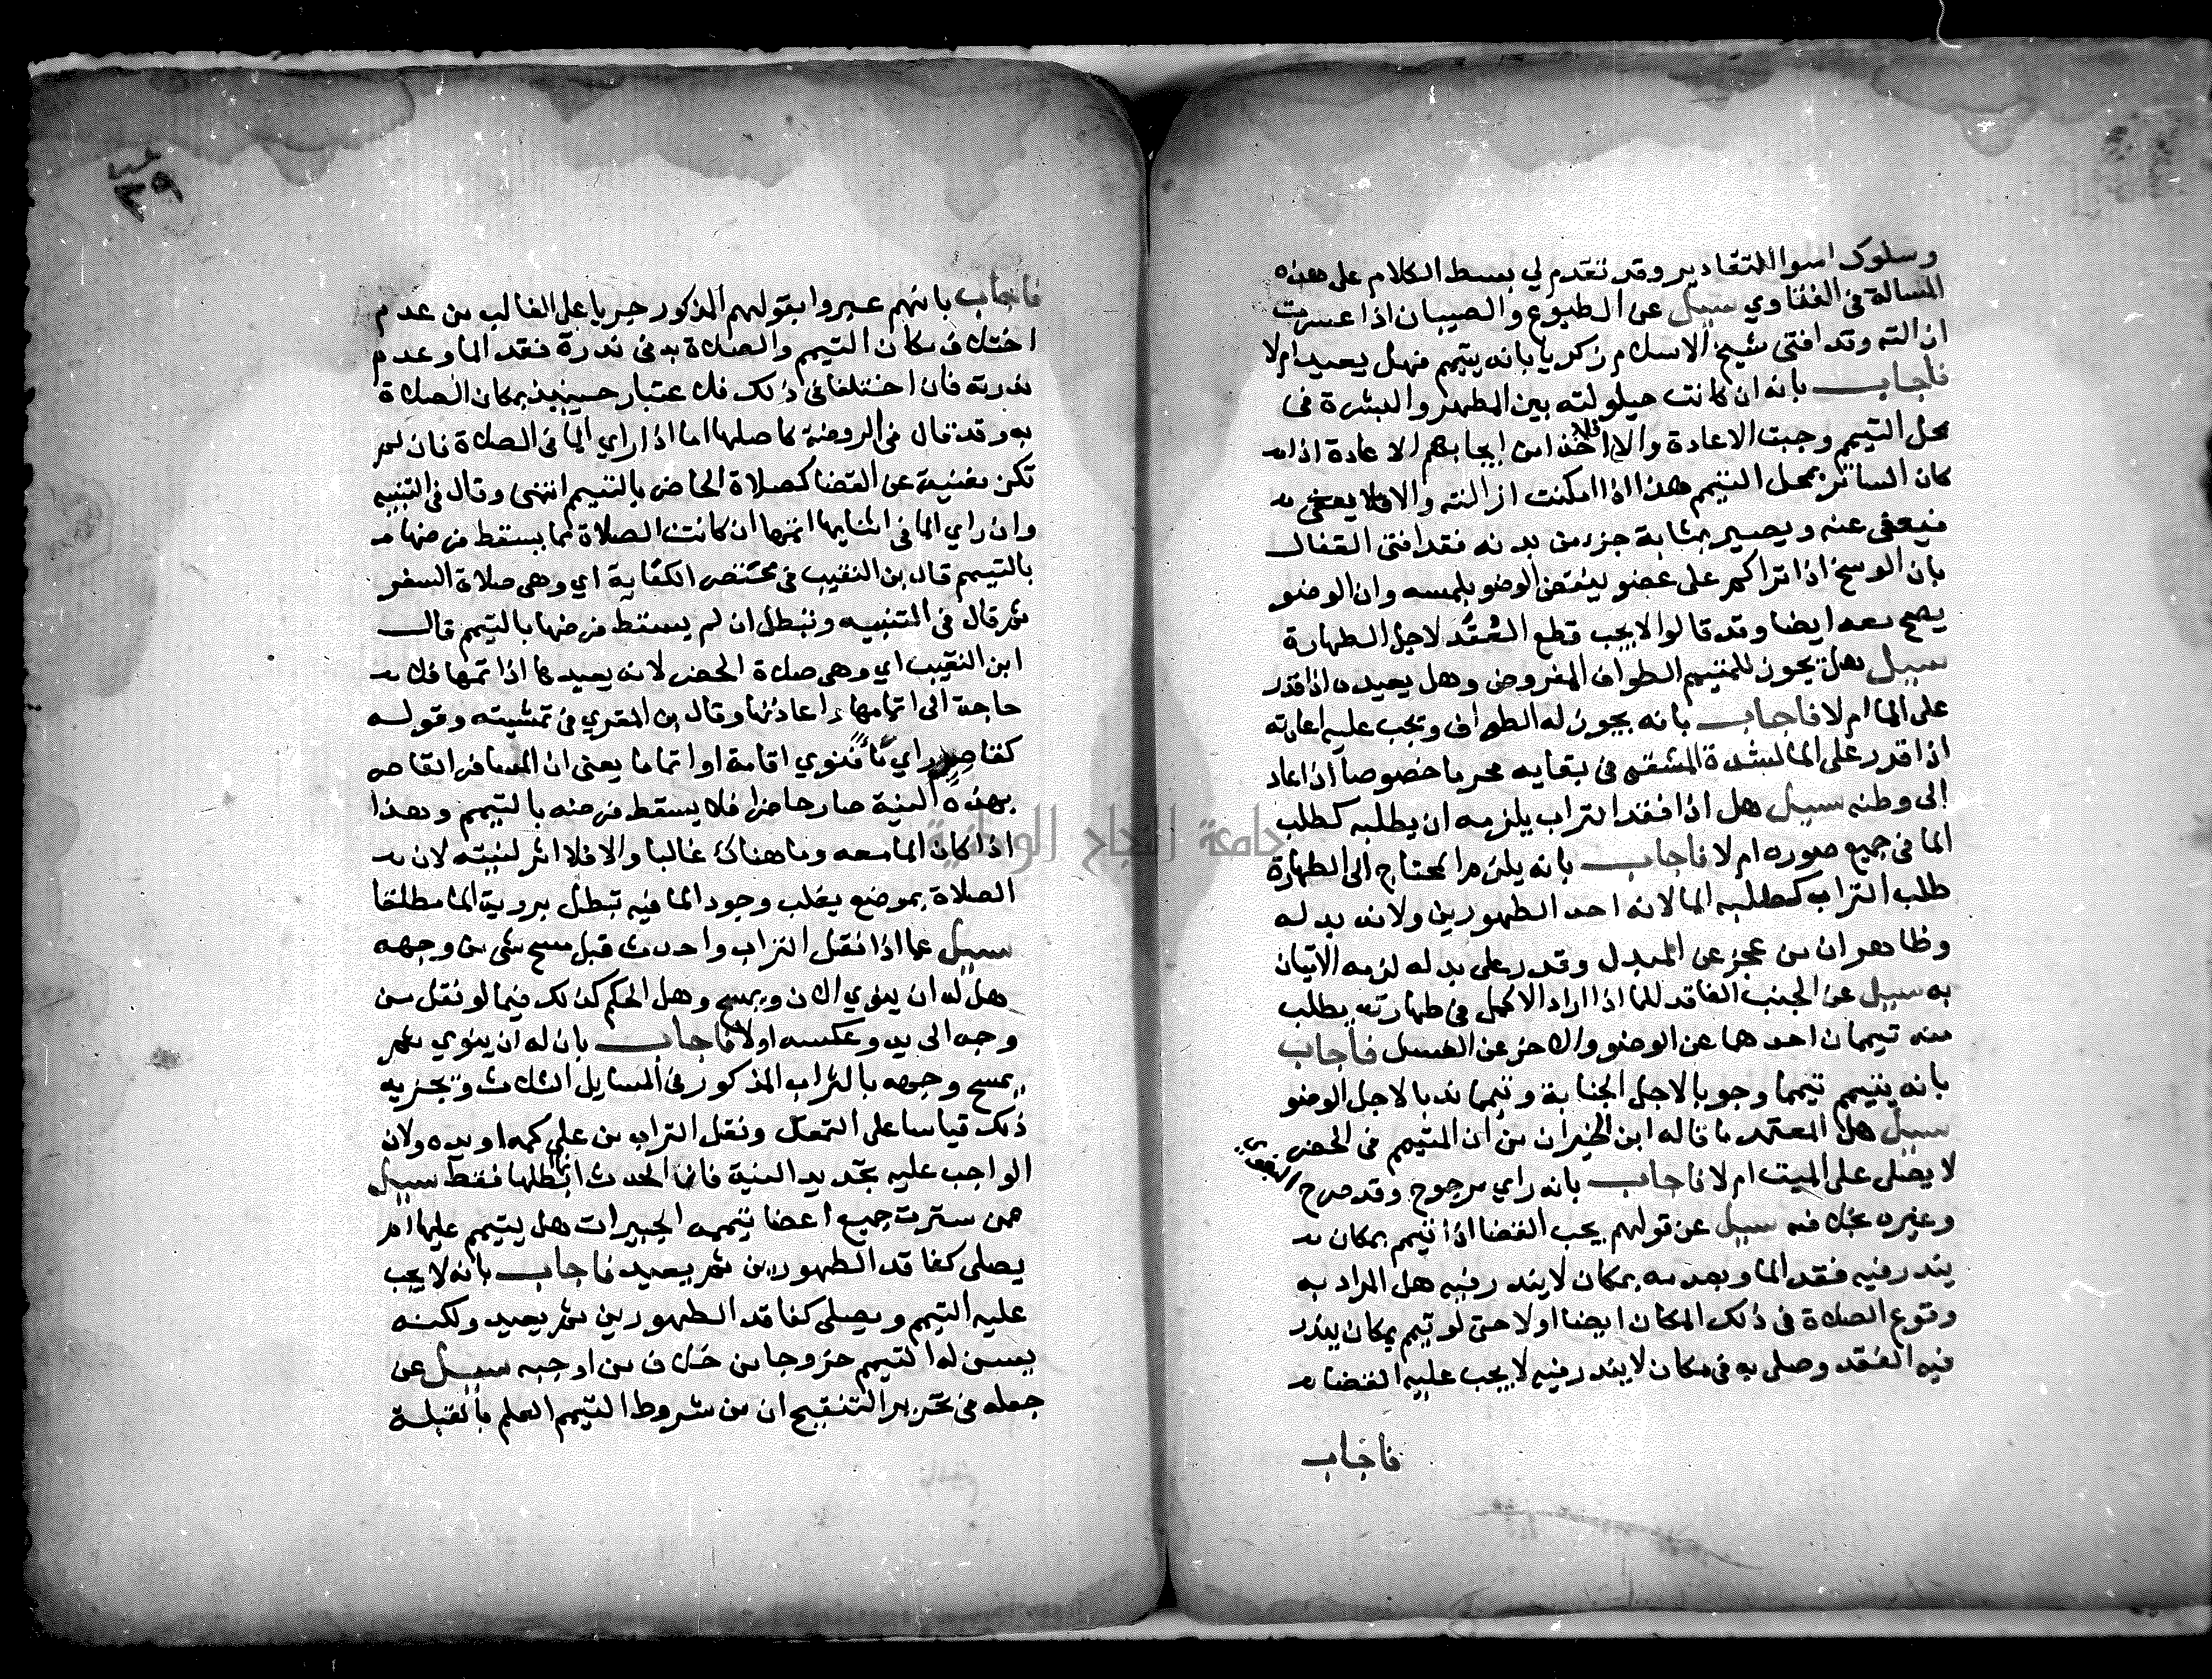 وسلوك اسوا التقادير وقد تقدم لي بسط الكلام على هذه
المسالة في الفتاوي سيل عن الطبوع والصيبان اذا عسرت
ازالته وقد افتى شيخ الاسلام زكريا بانه يتيمم فهل يعيد ام لا
فاجاب بانه ان كانت حيلولته بين المطهر والبشرة في
محل التيمم وجبت الاعادة والا فلا اخذا من ايجابهم الاعادة اذا
كان الساتر بمحل التيمم هذا اذا امكنت ازالته والا فلا يعفى
فيعفى عنه ويصير بمثابة جزء من بدنه فقد افتى القفال
بان الوسخ اذا تراكم على عضو لينتقض الوضو بلمسه وان الوضو
يصح معه ايضا وقد قالوا لا يجب قطع العُقَد لاجل الطهارة
سيل هل يجوز للمتيمم الطواف المفروض وهل يعيده اذا قدر
على الما ام لا فاجاب بانه يجوز له الطواف ويجب عليه اعادته
اذا قدر على الما لشدة المشقه في بقايه محرما خصوصا اذا عاد
الى وطنه سيل هل اذا فقد التراب يلزمه ان يطلبه كطلب
الما في جميع صوره ام لا فاجاب بانه يلزم المحتاج الى الطهارة
طلب التراب كطلبه الما لانه احد الطهورين ولانه بدله
وظاهر ان من عجز عن المبدل وقدر على بدله لزمه الاتيان
به سيل عن الجنب الفاقد للما اذا اراد الاكمل في طهارته يطلب
منه تيممان احدهما عن الوضو والاخر عن الغسل فاجاب
بانه يتيمم تيمما وجوبا لاجل الجنابة وتيمما ندبا لاجل الوضو
سيل هل المعتمد ما قاله ابن الخيران من ان المتيمم في الحضر
لا يصلى على الميت ام لا فاجاب بانه راي مرجوح وقد صرح
وغيره بخلافه سيل عن قولهم يجب القضا اذا تيمم بمكان
يندر فيه فقد الما وبعدمه بمكان لا يندر فيه هل المراد به
وقوع الصلاة في ذلك المكان ايضا اولا حتى لو تيمم بمكان يندر
فيه الفقد وصلى به في مكان لا يندر فيه لا يجب عليه القضا
فاجاب
فاجاب بانهم عبروا بقولهم المذكور جريا على الغالب من عدم
اختلاف مكان التيمم والصلاة به في ندرة فقد الما وعدم
ندرته فان اختلفا في ذلك فلا عتبار حينيذ بمكان الصلاة
به وقد قال في الروضة كاصلها اما اذا راي الما في الصلاة فان لم
تكن مغنية عن القضا كصلاة الحاضر بالتيمم انتهى وقال في التنبيه
وان راي الما في اثنايها اتمها ان كانت الصلاة مما يسقط فرضها
بالتيمم قال بن النقيب في مختصر الكفاية اي وهي صلاة السفر
ثم قال في التنبيه وتبطل ان لم يسقط فرضها بالتيمم قال
ابن النقيب اي وهي صلاة الحضر لانه يعيدها اذا تمها فلا
حاجة الى اتمامها واعادتها وقال بن المقري في تمشيته وقوله
كقاصر راي ما فنوي اقامة او اتماما يعني ان المسافر القاصر
بهذه النية صار حاضرا فلا يسقط فرضه بالتيمم وهذا
اذا كان الما معه وما هناك غالبا والا فلا اثر لنيته لان
الصلاة بموضع يغلب وجود الما فيه تبطل بروية الما مطلقا
سيل عما اذا نقل التراب واحدث قبل مسح شي من وجهه
هل له ان ينوي الان ويمسح وهل الحكم كذلك فيما لو نقل من
وجه الى يد وعكسه اولا فاجاب بان له ان ينوي ثم
يمسح وجهه بالتراب المذكور في المسايل الثلاث ويجزيه
ذلك قياسا على التمعك ونقل التراب من على كمه او يده ولان
الواجب عليه تجديد النية فانما الحدث ابطلها فقط سيل
عمن سترت جميع اعضا تيممه الجبيرات هل يتيمم عليها ام
يصلى كفاقد الطهورين ثم يعيد فاجاب بانه لا يجب
عليه التيمم ويصلى كفاقد الطهورين ثم يعيد ولكنه
يسن له التيمم خروجا من خلاف من اوجبه سيل عن
جعله في تحرير التنقيح ان من شروط التيمم العلم بالقبلة
جامعة النجاح الوطنية